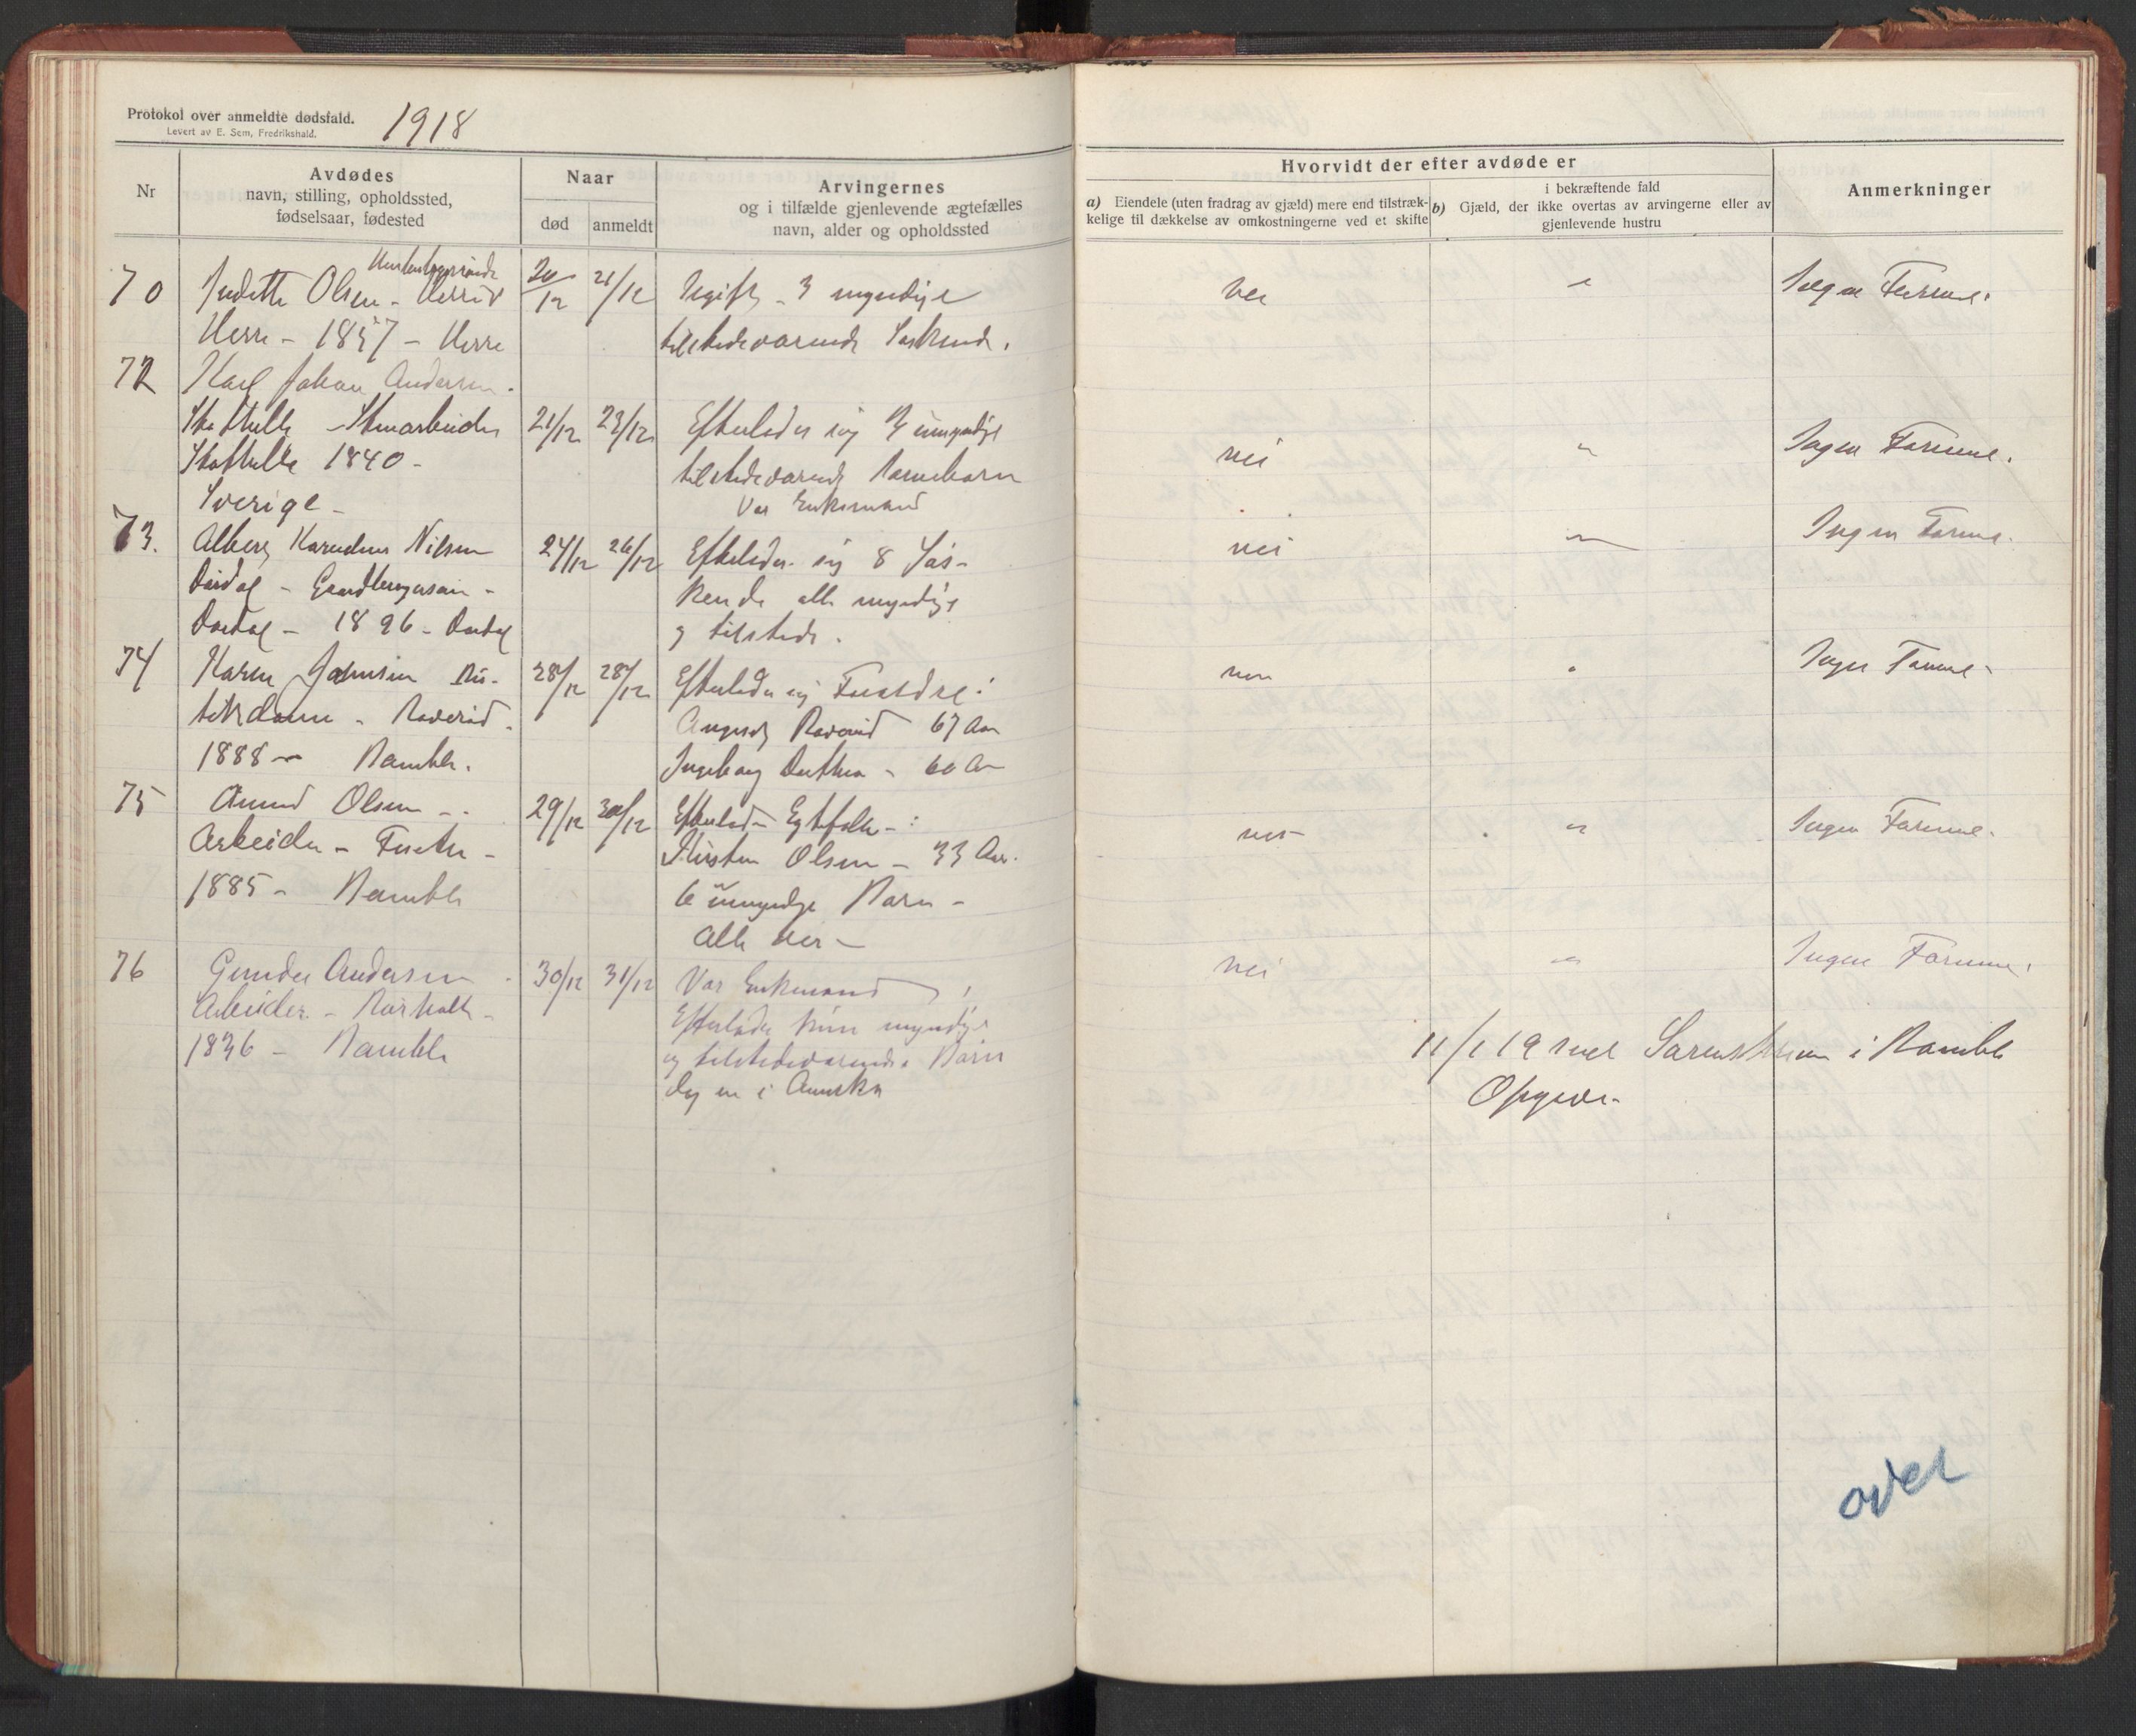 Protokol over anmeldte dødsfald. 1918
Levert av E. Sem, Fredrikshald.
Nr
Avdødes
navn, stilling, opholdssted,
fødselsaar, fødested
Naar
død
anmeldt
Arvingernes
og i tilfælde gjenlevende ægtefælles
navn, alder og opholdssted
Hvorvidt der efter avdøde er
a) Eiendele (uten fradrag av gjæld) mere end tilstræk-
kelige til dækkelse av omkostningerne ved et skifte
i bekræftende fald
b) Gjæld, der ikke overtas av arvingerne eller av
gjenlevende hustru
Anmerkninger
70 Olsen - 20/12 21/12 Ugift - 3 myndige nei " Ingen Formue.
Herre - 1857 - Herre tilstedeværende Søskende.
72 Karl Johan Andersen -
21/12 23/12 Efterlader sig umyndige nei " Ingen Formue.
1840 - tilstedeværende Barnebarn
Sverige - Var Enkemand
73. Albert Nilsen 24/12 26/12 Efterlader sig 8 Søs- nei " Ingen Formue.
Dørdal - kende alle myndige
Dørdal - 1896 - Dørdal og tilstede.
74 Karen 28/12 28/12 Efterlader sig Forældre: nei " Ingen Formue -
- Røverød - Røverød 67 Aar
1888 - Bamble. Ingeborg - 60 Aar
75 Olsen - 29/12 30/12 Efterlader Egtefælle - : nei " Ingen Formue.
Arbeider - - Kirsten Olsen - 33 Aar.
1885 - Bamble 6 umyndige Børn -
Alle her -
76 Gunder Andersen - 30/12 31/12 Var Enkemand nei " Ingen Formue.
Arbeider - Rørholt - Efterlader myndige
1836 - Bamble og tilstedeværende Børn
Dog en i Amerika
11/1 19 i Bamble
Opgave.
over